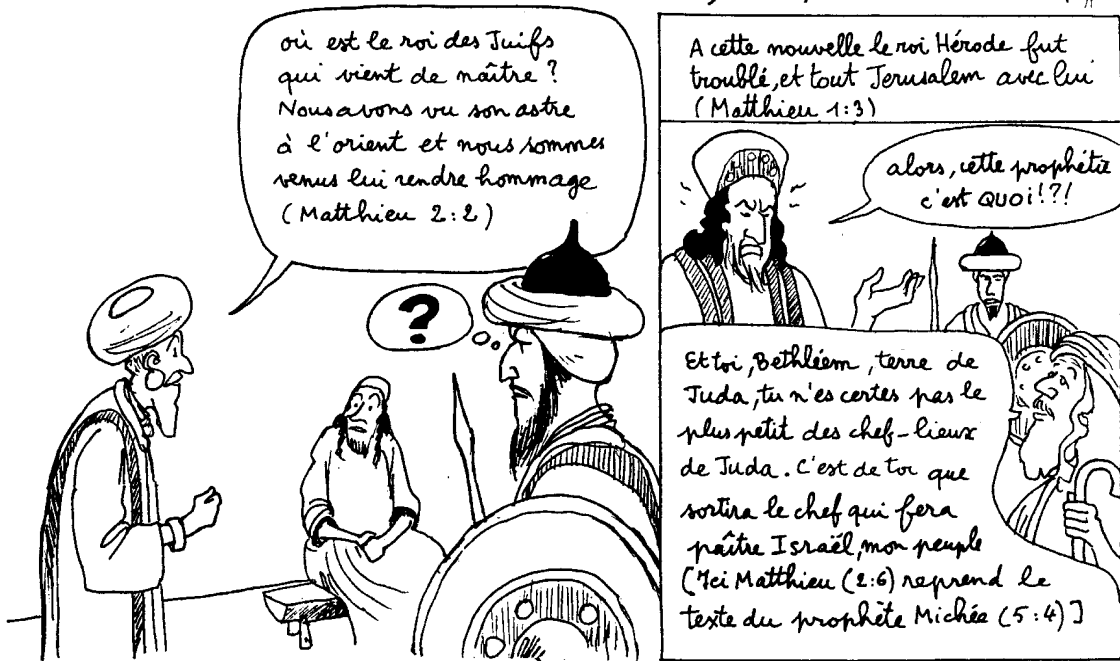 où est le roi des Juifs
qui vient de naître ?
Nous avons vu son astre
à l'orient et nous sommes
venus lui rendre hommage
(Matthieu 2:2)
?
A cette nouvelle le roi Hérode fut
troublé, et tout Jerusalem avec lui
(Matthieu 1:3)
alors, cette prophétie
c'est QUOI!?!
Et toi, Bethléem, terre de
Juda, tu n'es certes pas le
plus petit des chef-lieux
de Juda. C'est de toi que
sortira le chef qui fera
paître Israël, mon peuple
[Ici Matthieu (2:6) reprend le
texte du prophète Michée (5:4)]